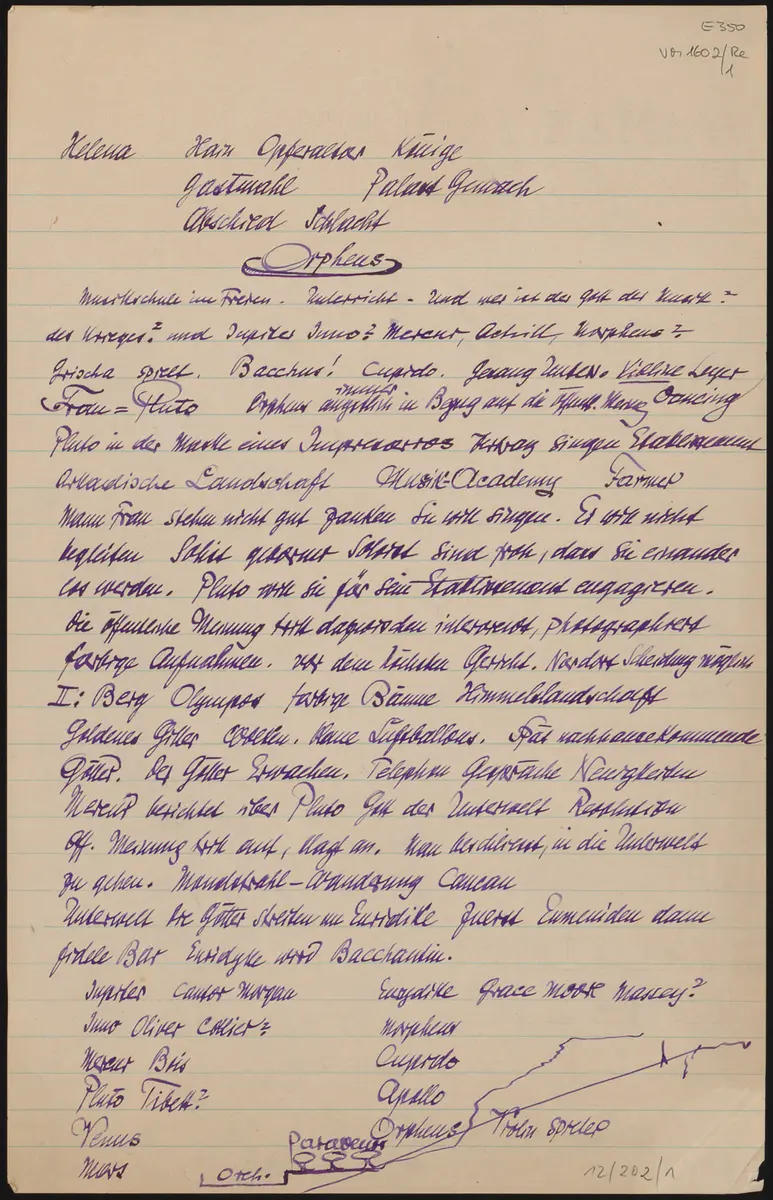 E 350
Vor 1602/Re
1
Helena Hain Opferaltar Könige
Gastmahl Palast Gemach
Abschied Schlacht
Orpheus
Musikschule im Freien. Unterricht - Und wer ist der Gott der Musik?
des Krieges? und Jupiter Juno? Mercur, Achill, Morpheus?
Grischa spielt. Bacchus! Cupido. Gesang Unterr. Violine Leyer
Frau = Pluto Orpheus immer ängstlich in Bezug auf die öffentl. Meing Dancing
Pluto in der Maske eines Impresarios singen Etablissement
Arkadische Landschaft Musik-Academy Farmer
Mann Frau stehen nicht gut zanken Sie will singen. Er will nicht
begleiten Solist geborner Solist sind froh, dass sie einander
los werden. Pluto will sie für sein Etablissement engagieren.
die öffentliche Meinung tritt dazwischen interviewt, photographiert
farbige Aufnahmen. vor dem höchsten Gericht. Nur dort Scheidung möglich
II: Berg Olympos farbige Bäume Himmelslandschaft
Goldenes Gitter Wolken. blaue Luftballons. Spät nachhausekommende
Götter. Der Götter Erwachen. Telephon Gespräche Neuigkeiten
Mercur berichtet über Pluto Gott der Unterwelt Revolution
Öff. Meinung tritt auf, klagt an. Man beschliesst, in die Unterwelt
zu gehen. Mondstrahl-Wanderung Cancan
Unterwelt Die Götter streiten um Euridike Zuerst Eumeniden dann
fidele Bar Euridyke wird Bacchantin.
Jupiter Cantor Morgan Eurydike Grace Moore Massey?
Juno Oliver Collier? Morpheus
Mercur Bois Cupido
Pluto Tibett? Apollo
Venus Orpheus Violin spieler
Mars Orch. Paravent
12/202/1